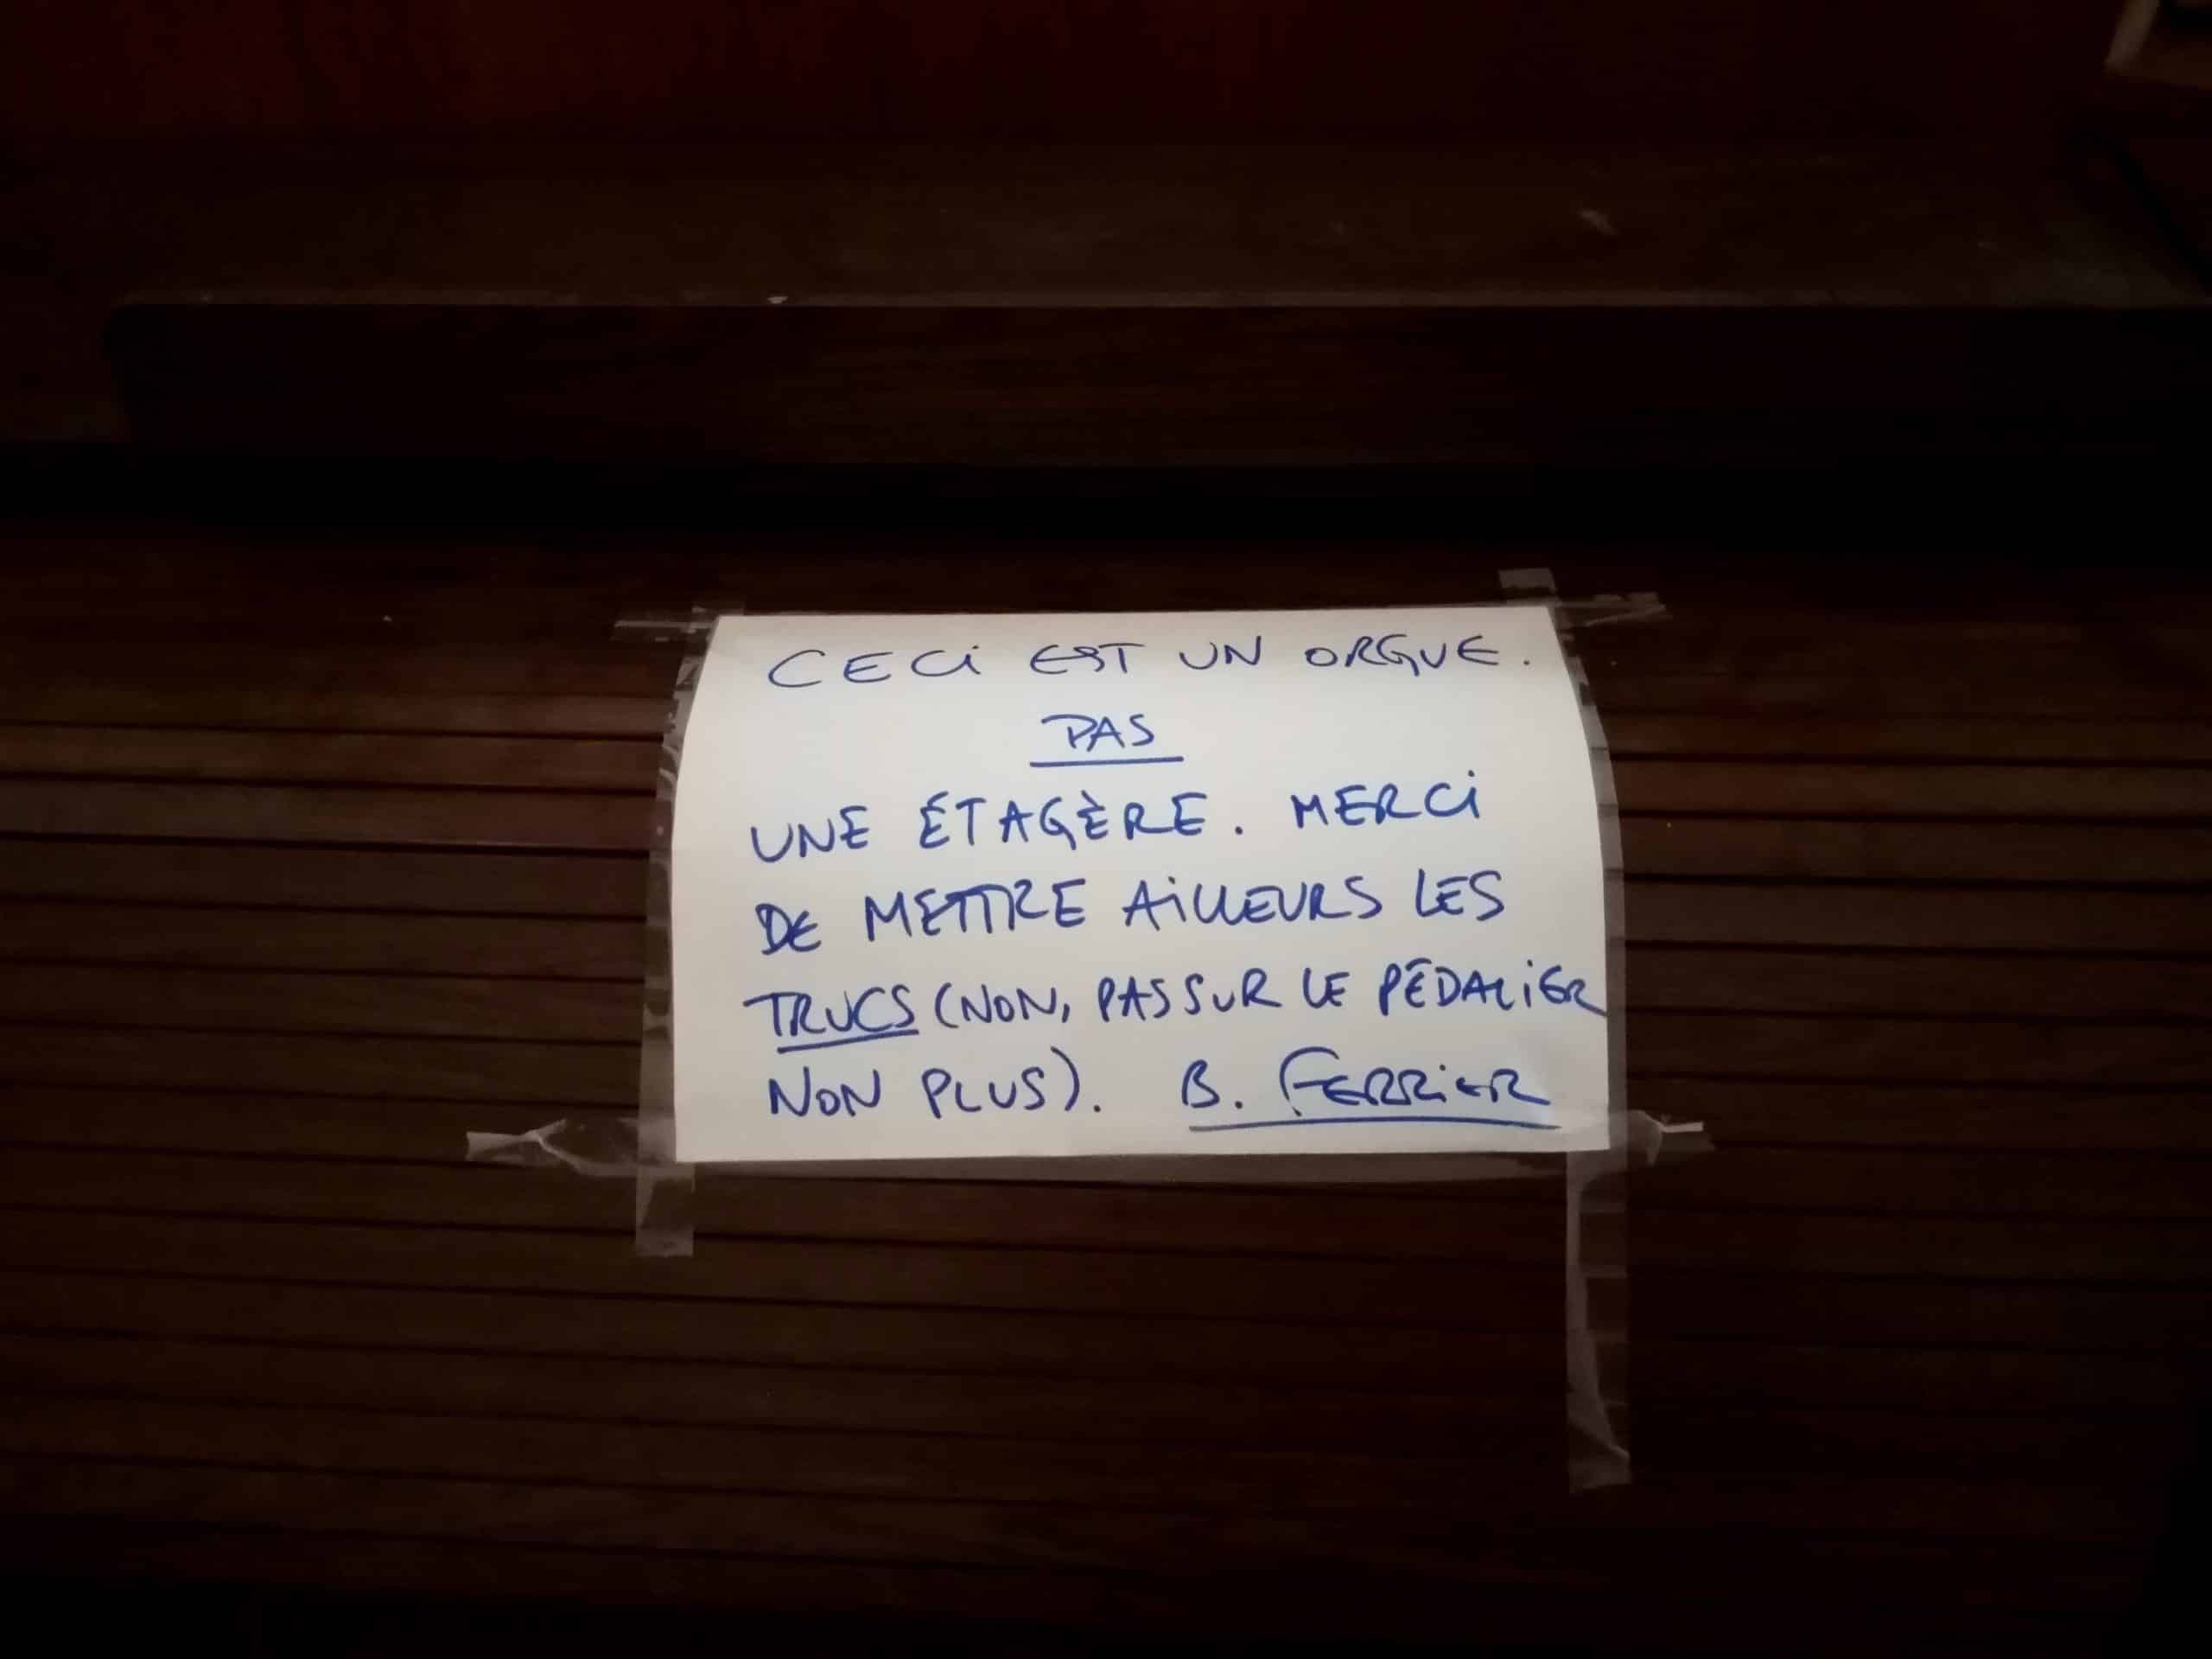 CECi EST UN ORGUE.
PAS
UNE ÉTAGÈRE. MERCi
DE METTRE AiLLEURS LES
TRUCS (NON, PAS SUR LE PÉDALiER
NON PLUS). B. FERRiER